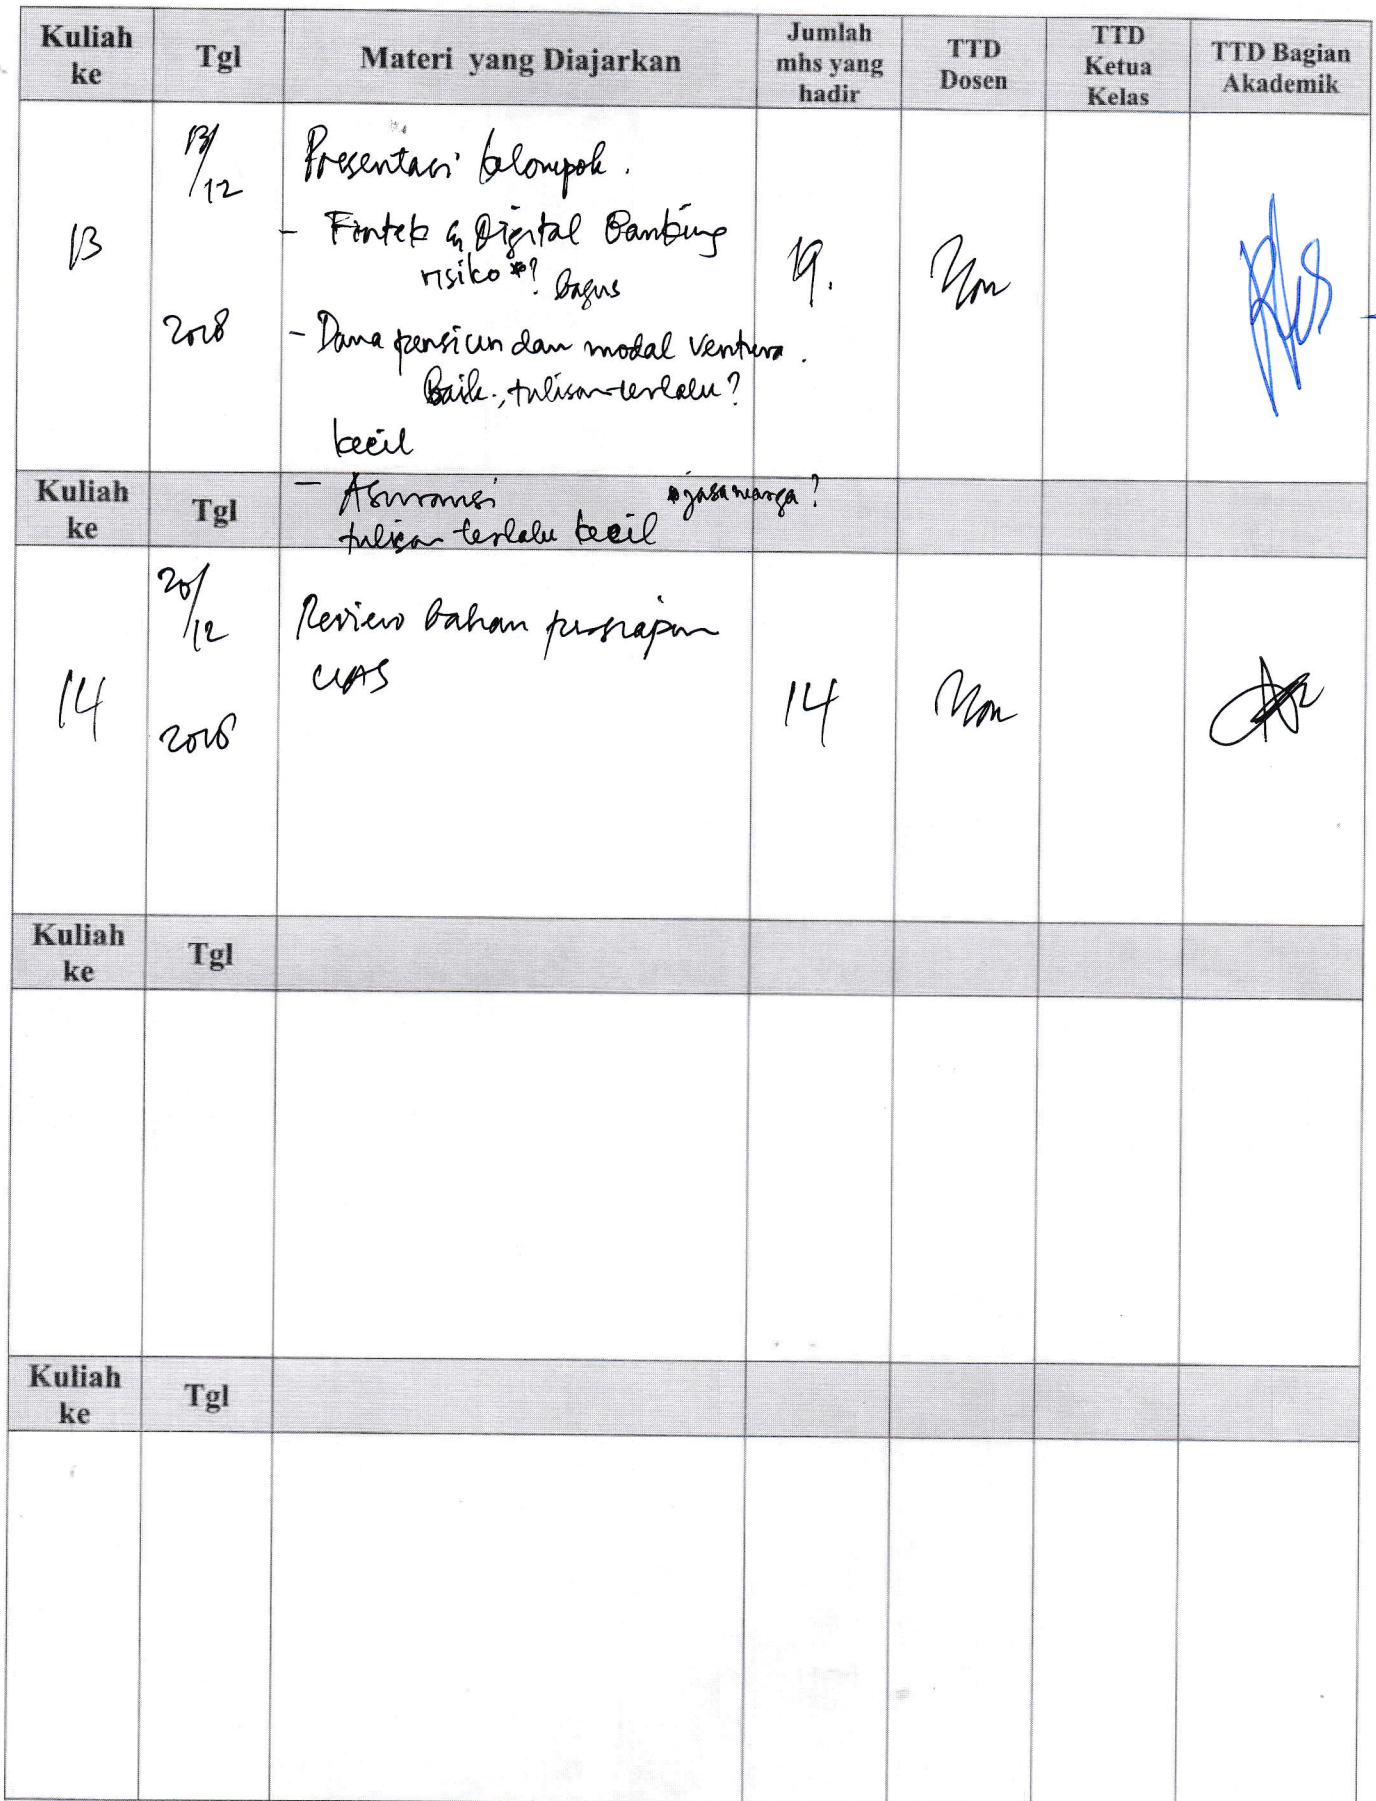 Kuliah ke Tgl Materi yang Diajarkan Jumlah mhs yang hadir TTD Dosen TTD Ketua Kelas TTD Bagian Akademik
13/12 Presentasi kelompok.
- Fintek & Digital Banking
13 risiko *? bagus 19.
2018 - Dana pensiun dan modal ventura.
Baik., tulisan terlalu?
kecil
Kuliah ke Tgl - Asuransi * jasa marga?
tulisan terlalu kecil
20/12 Review bahan persiapan
14 UAS 14
2018
Kuliah ke Tgl
Kuliah ke Tgl